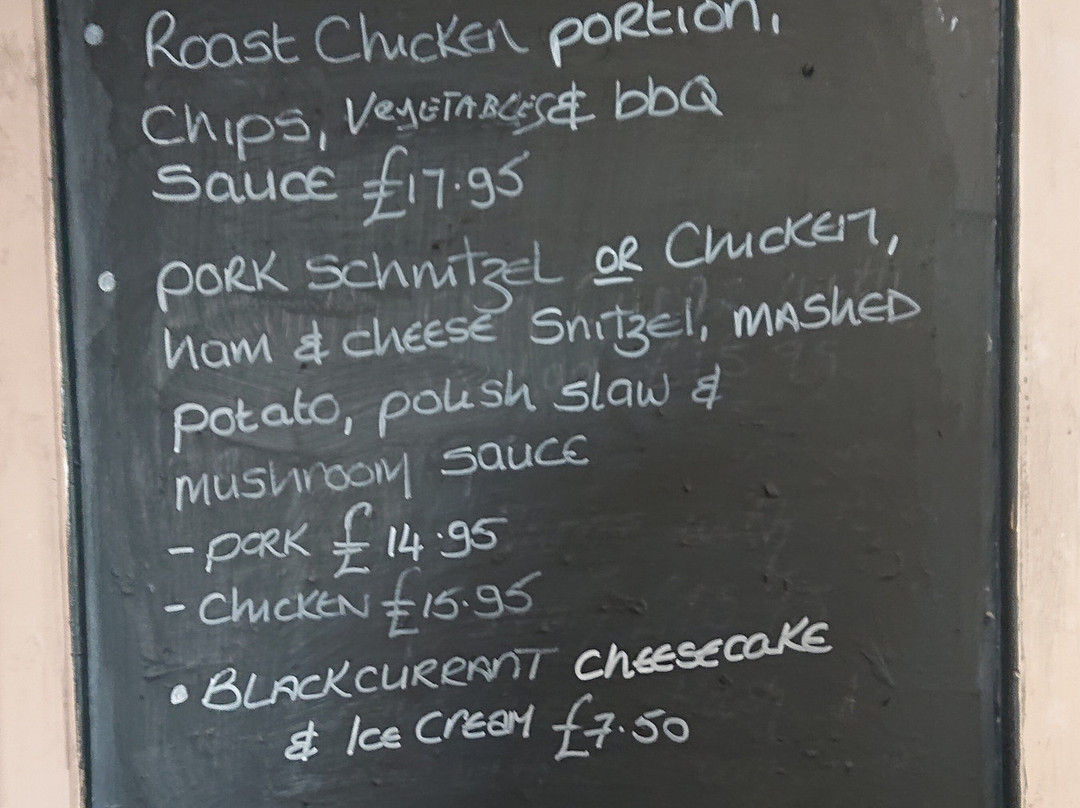 • Roast Chicken portion,
Chips, Vegetables & bbq
Sauce £17.95
• Pork Schnitzel or Chicken,
ham & cheese Snitzel, mashed
potato, polish slaw &
mushroom sauce
- Pork £14.95
- Chicken £15.95
• Blackcurrant Cheesecake
& Ice Cream £7.50